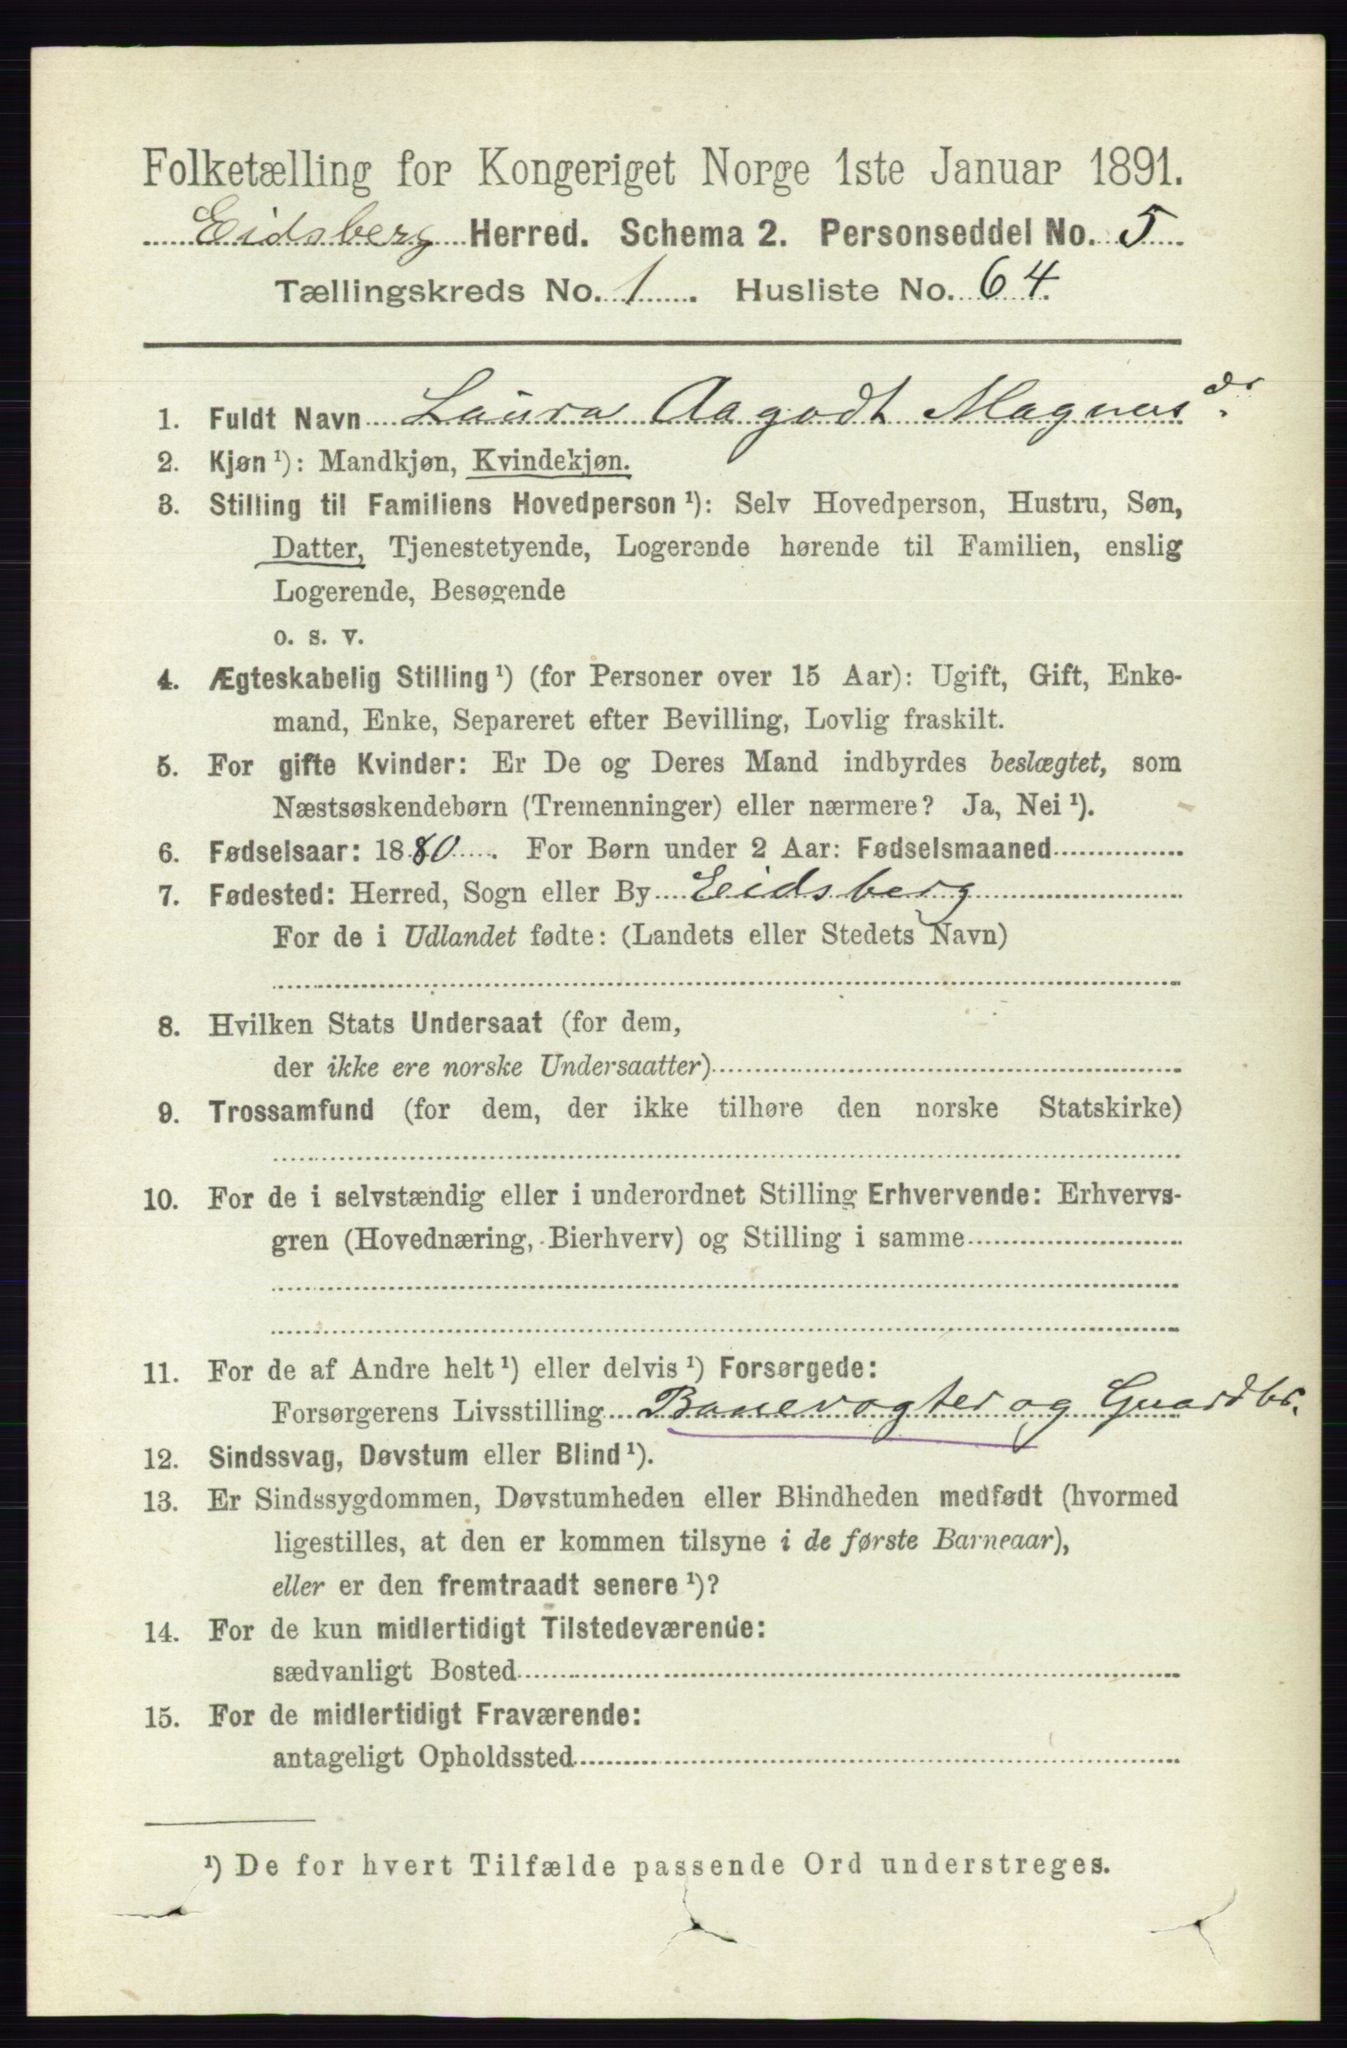 Folketælling for Kongeriget Norge 1ste Januar 1891.
Eidsberg Herred. Schema 2. Personseddel No. 5
Tællingskreds No. 1. Husliste No. 64.
1. Fuldt Navn Laura Aagodt Magnusdr.
2. Kjøn ¹): Mandkjøn, Kvindekjøn.
3. Stilling til Familiens Hovedperson ¹): Selv Hovedperson, Hustru, Søn,
Datter, Tjenestetyende, Logerende hørende til Familien, enslig
Logerende, Besøgende
o. s. v.
4. Ægteskabelig Stilling ¹) (for Personer over 15 Aar): Ugift, Gift, Enke-
mand, Enke, Separeret efter Bevilling, Lovlig fraskilt.
5. For gifte Kvinder: Er De og Deres Mand indbyrdes beslægtet, som
Næstsøskendebørn (Tremenninger) eller nærmere? Ja, Nei ¹).
6. Fødselsaar: 1880. For Børn under 2 Aar: Fødselsmaaned
7. Fødested: Herred, Sogn eller By Eidsberg
For de i Udlandet fødte: (Landets eller Stedets Navn)
8. Hvilken Stats Undersaat (for dem,
der ikke ere norske Undersaatter)
9. Trossamfund (for dem, der ikke tilhøre den norske Statskirke)
10. For de i selvstændig eller i underordnet Stilling Erhvervende: Erhvervs-
gren (Hovednæring, Bierhverv) og Stilling i samme
11. For de af Andre helt ¹) eller delvis ¹) Forsørgede:
Forsørgerens Livsstilling Banevogter og Guardbr.
12. Sindssvag, Døvstum eller Blind ¹).
13. Er Sindssygdommen, Døvstumheden eller Blindheden medfødt (hvormed
ligestilles, at den er kommen tilsyne i de første Barneaar),
eller er den fremtraadt senere ¹)?
14. For de kun midlertidigt Tilstedeværende:
sædvanligt Bosted
15. For de midlertidigt Fraværende:
antageligt Opholdssted
¹) De for hvert Tilfælde passende Ord understreges.